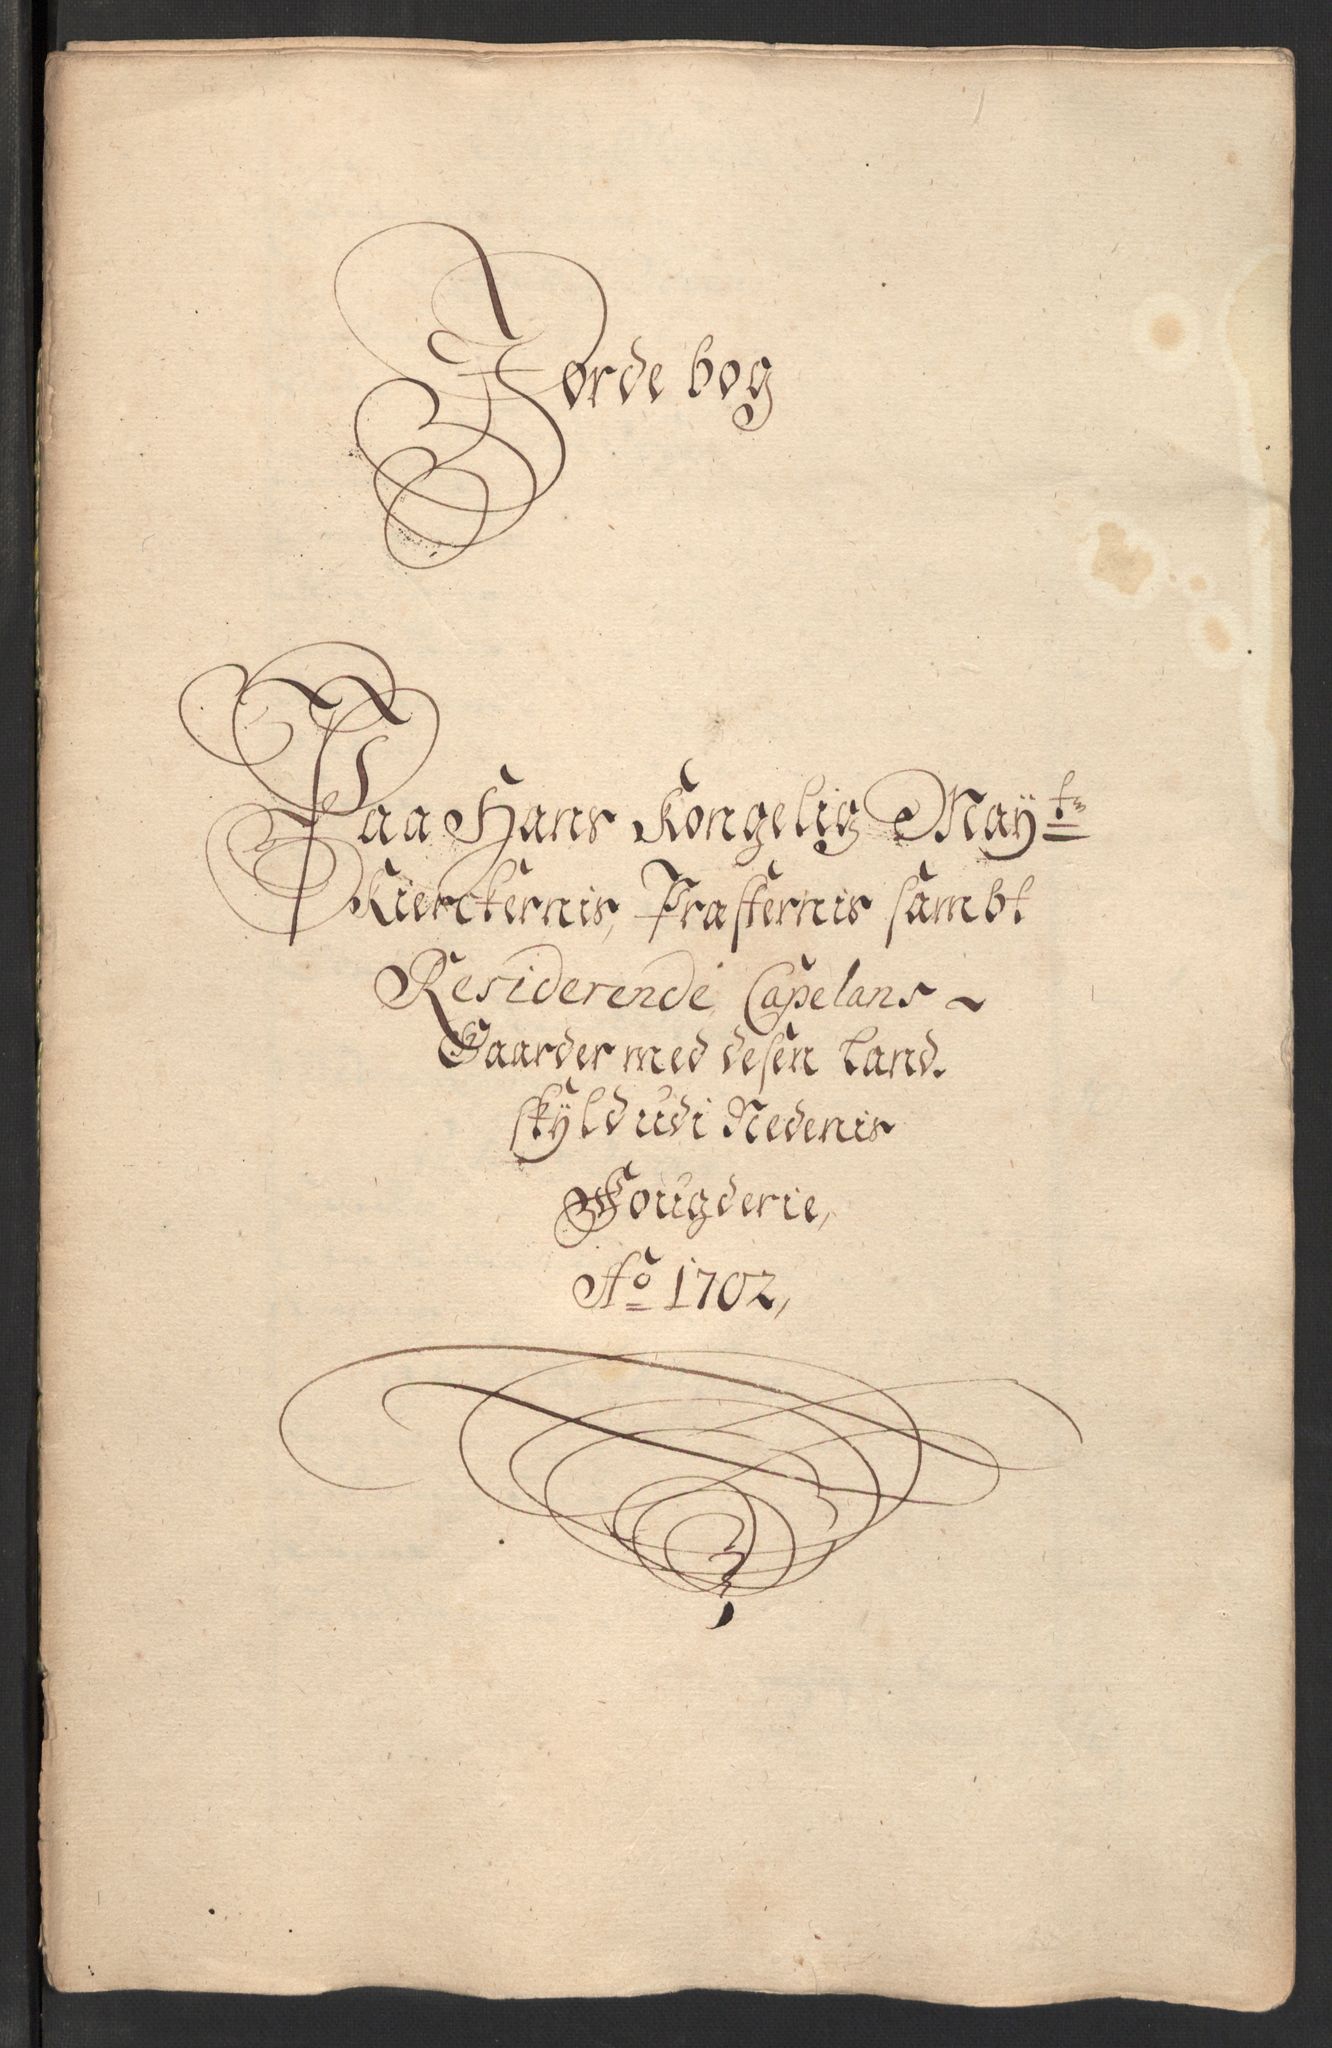 Jorde bog
Paa Hans Kongelig Mayts
Kierckernis, Præsternis sambt
Residerende Capelans
Gaarder med desen Land.
skÿld udi Nedenis
Fougderie,
Ao 1702,